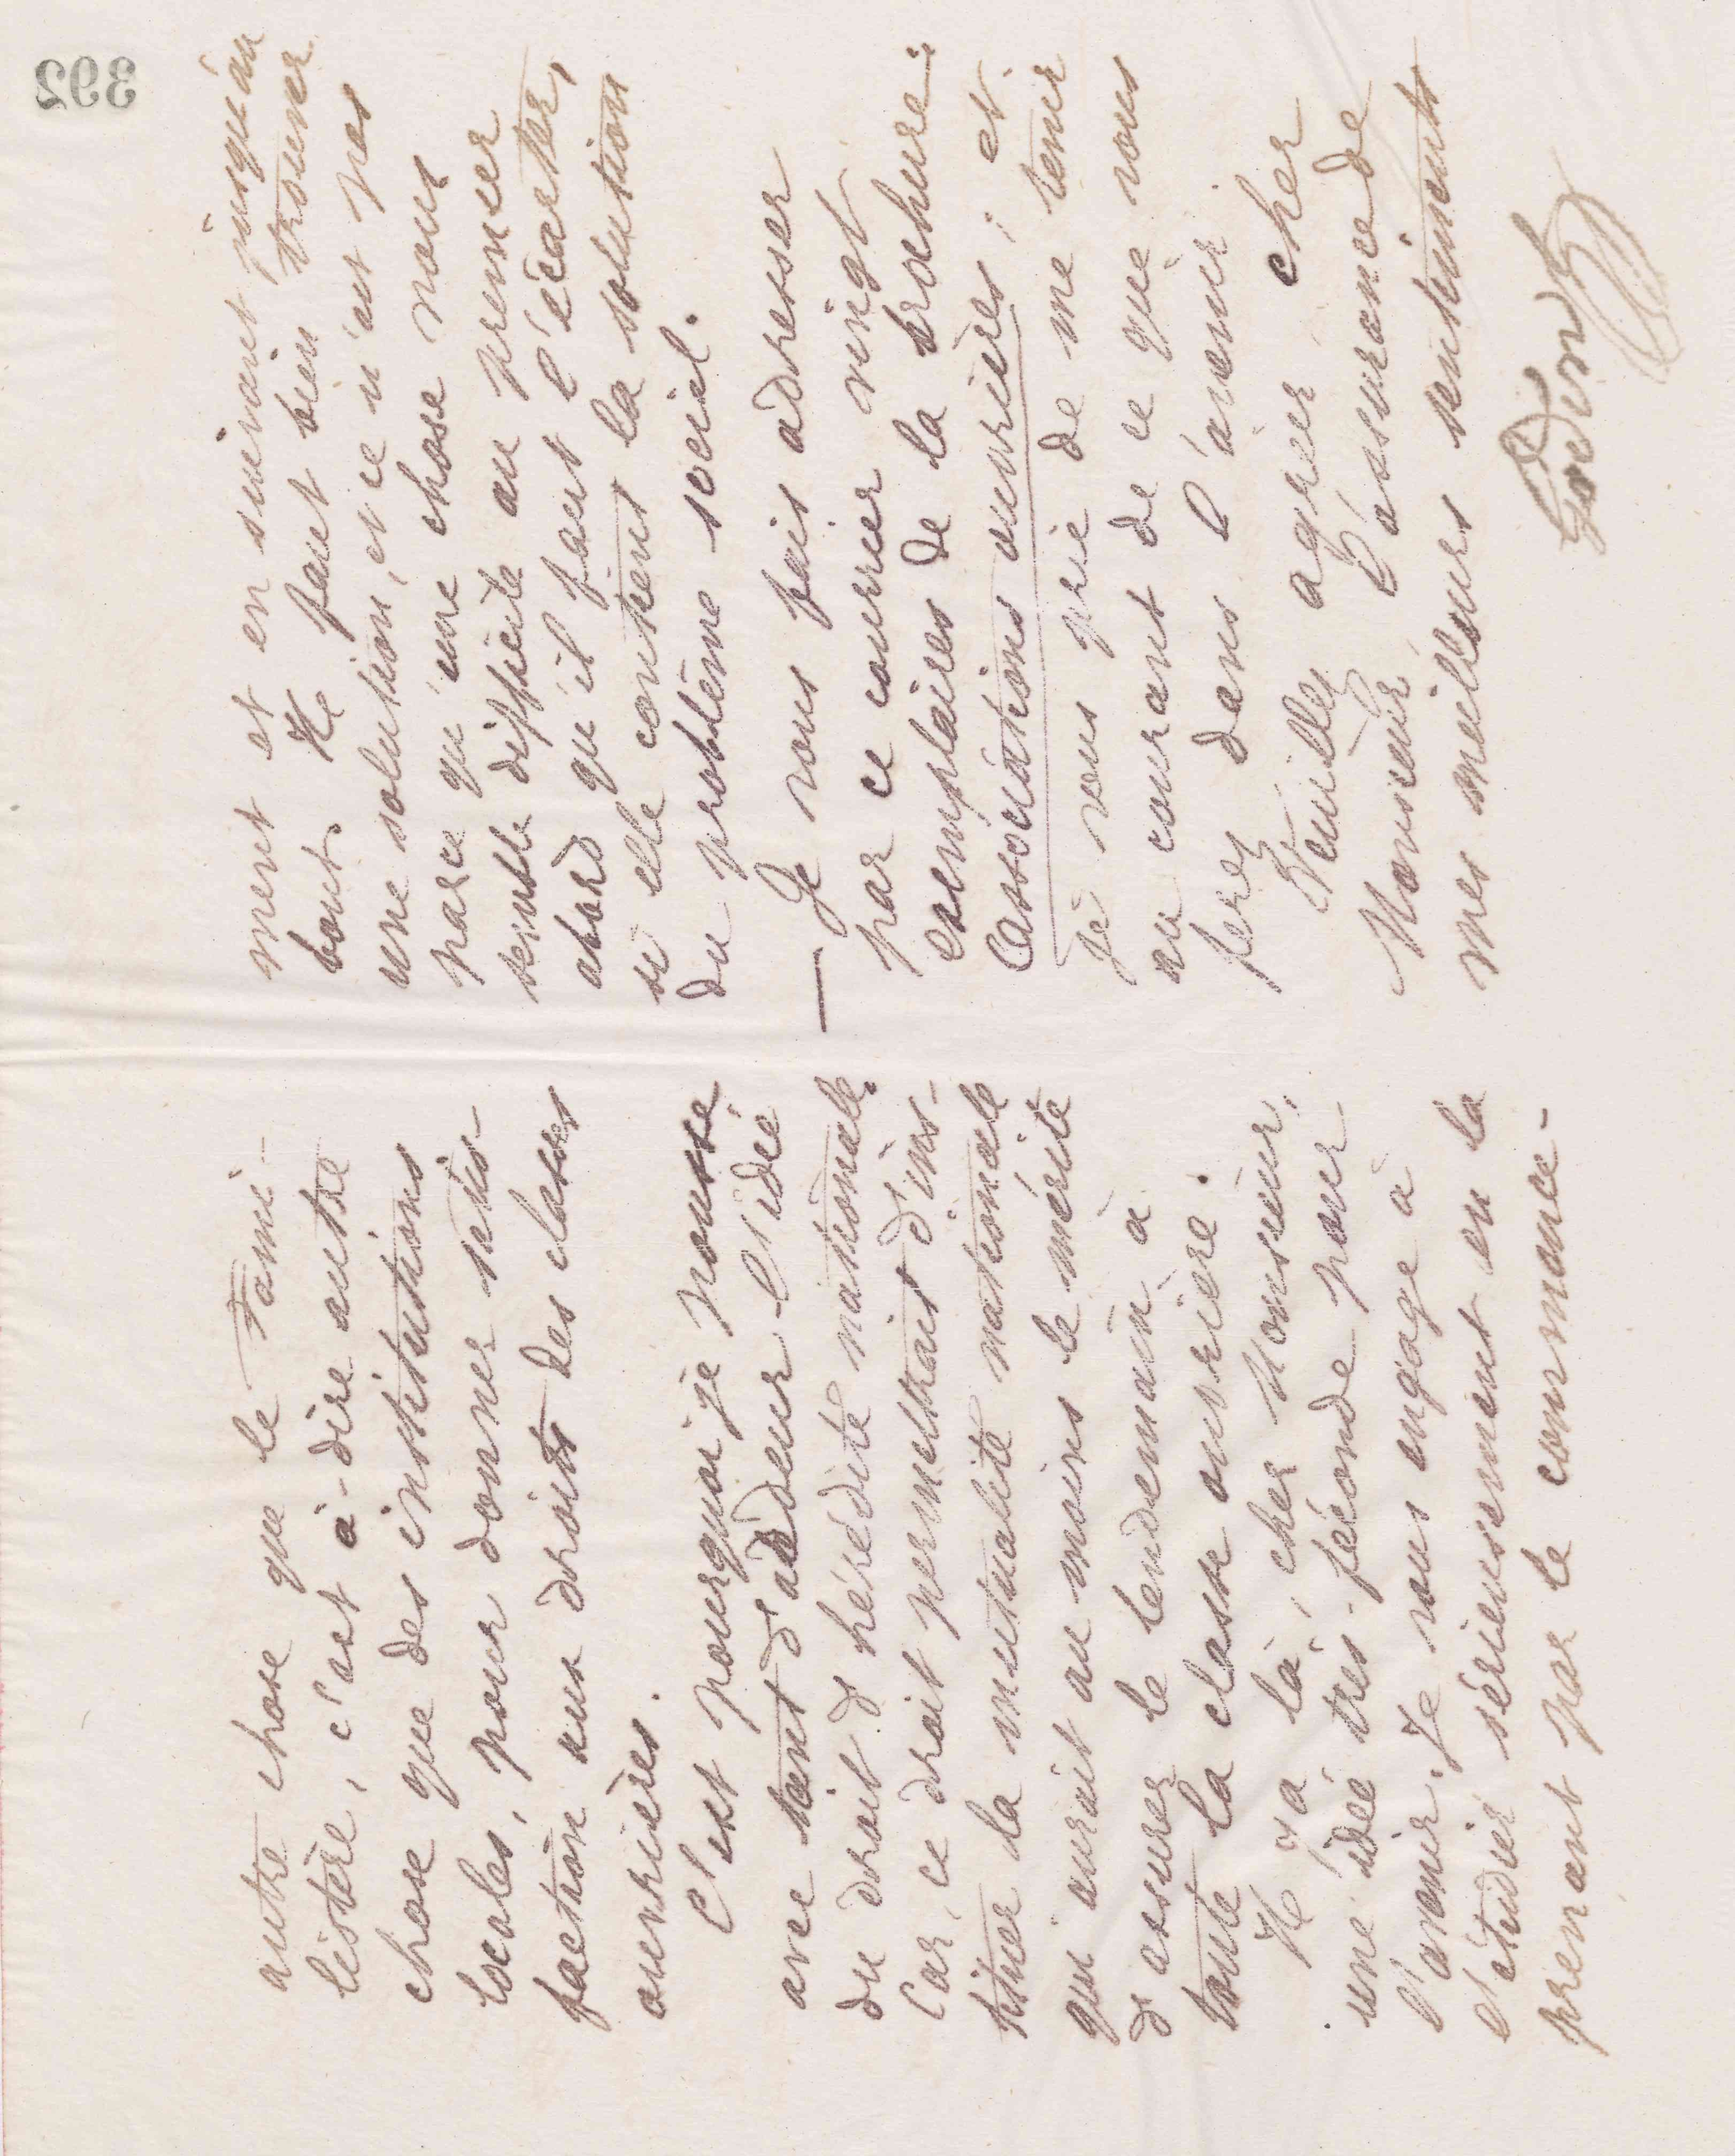 392
autre chose que le Fami-
listère, c'est à-dire autre
chose que des institutions
locales, pour donner satis-
faction aux droits des classes
ouvrières.
C'est pourquoi je pousse
avec tant d'ardeur l'idée
du droit d'hérédité nationale.
Car, ce droit permettrait d'ins-
tituer la mutualité nationale
qui aurait au moins le mérite
d'assurer le lendemain à
toute la classe ouvrière.
Il y a là, cher Monsieur,
une idée très-féconde pour
l'avenir. Je vous engage à
l'étudier sérieusement en la
prenant par le commence-
ment et en suivant jusqu'au
bout. Il faut bien trouver
une solution, et ce n'est pas
parce qu'une chose nous
semble difficile au premier
abord qu'il faut l'écarter,
si elle contient la solution
du problème social.
— Je vous fais adresser
par ce courrier vingt
exemplaires de la brochure:
Associations ouvrières; et
je vous prie de me tenir
au courant de ce que vous
ferez dans l'avenir.
Veuillez agréer cher
Monsieur, l'assurance de
mes meilleurs sentiments
Godin